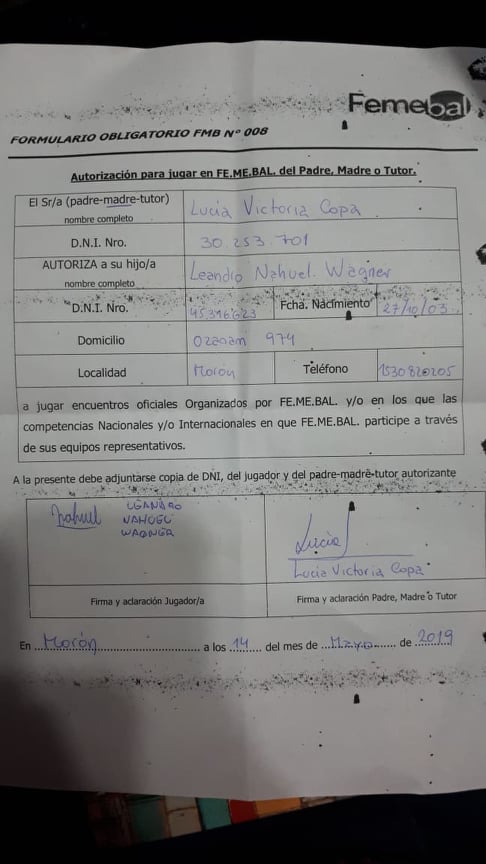 Femebal
FORMULARIO OBLIGATORIO FMB Nº 008
Autorización para jugar en FE.ME.BAL. del Padre, Madre o Tutor.
El Sr/a (padre-madre-tutor)
nombre completo
Lucia Victoria Copa
D.N.I. Nro.
30.253.701
AUTORIZA a su hijo/a
nombre completo
Leandro Nahuel. Wagner
D.N.I. Nro.
45316623
Fcha. Nacimiento
27/10/03
Domicilio
Ozanam 974
Localidad
Morón
Teléfono
1530820205
a jugar encuentros oficiales Organizados por FE.ME.BAL. y/o en los que las
competencias Nacionales y/o Internacionales en que FE.ME.BAL. participe a través
de sus equipos representativos.
A la presente debe adjuntarse copia de DNI, del jugador y del padre-madre-tutor autorizante
Nahuel
LEANDRO
NAHUEL
WAGNER
Lucia
Lucia Victoria Copa
Firma y aclaración Jugador/a
Firma y aclaración Padre, Madre o Tutor
En ...Morón... a los .14. del mes de ...Mayo... de .2019.